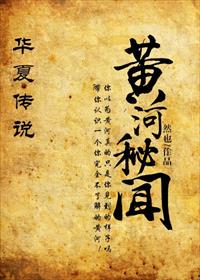 华夏·传说
黄河秘闻
然也作品
你以为黄河真的只是你见到的样子吗
带你认识一个你完全不了解的黄河！